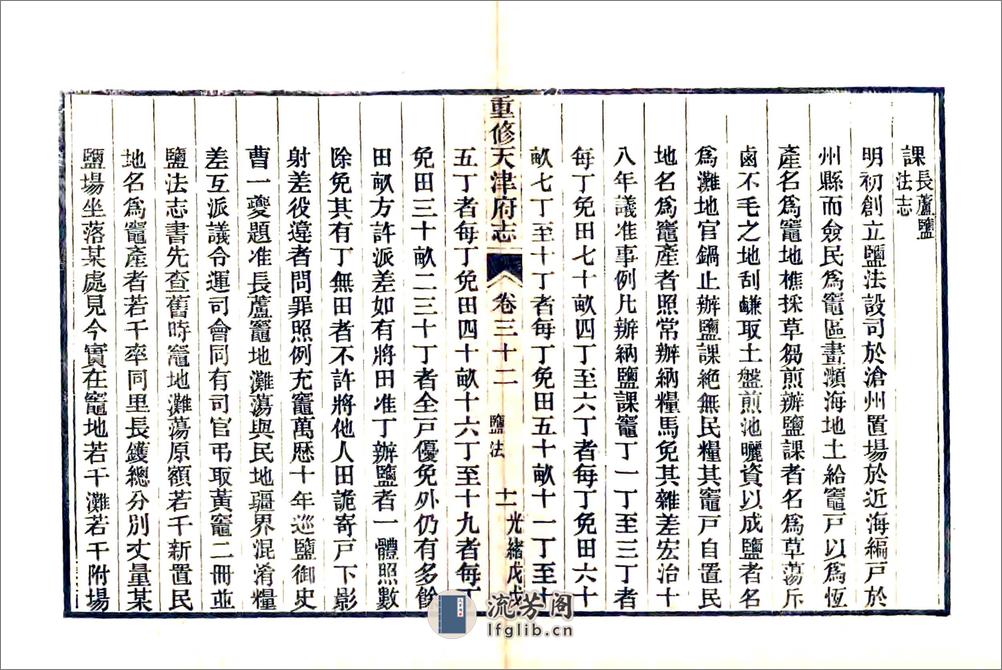 課長蘆鹽
法志
明初創立鹽法設司於滄州置場於近海編戸於
州縣而僉民爲竈區畫瀕海地土給竈戸以爲恆
產名爲竈地樵採草蒭煎辦鹽課者名爲草蕩斥
鹵不毛之地刮鹻取土盤煎池曬資以成鹽者名
爲灘地官鍋止辦鹽課絕無民糧其竈戸自置民
地名爲竈產者照常辦納糧馬免其雜差宏治十
八年議准事例凡辦納鹽課竈丁一丁至三丁者
每丁免田七十畝四丁至六丁者每丁免田六十
畝七丁至十丁者每丁免田五十畝十一丁至十
重修天津府志
卷三十二
鹽法
十一
光緒戊戌
五丁者每丁免田四十畝十六丁至十九者每丁
免田三十畝二三十丁者全戸優免外仍有多餘
田畝方許派差如有將田准丁辦鹽者一體照數
除免其有丁無田者不許將他人田詭寄戸下影
射差役違者問罪照例充竈萬歷十年巡鹽御史
曹一夔題准長蘆竈地灘蕩與民地疆界混淆糧
差互派議令運司會同有司官弔取黃竈二冊並
鹽法志書先查舊時竈地灘蕩原額若干新置民
地名爲竈產者若干率同里長鑊總分別丈量某
鹽場坐落某處見今實在竈地若干灘若干附場
流芳阁
lfglib.cn